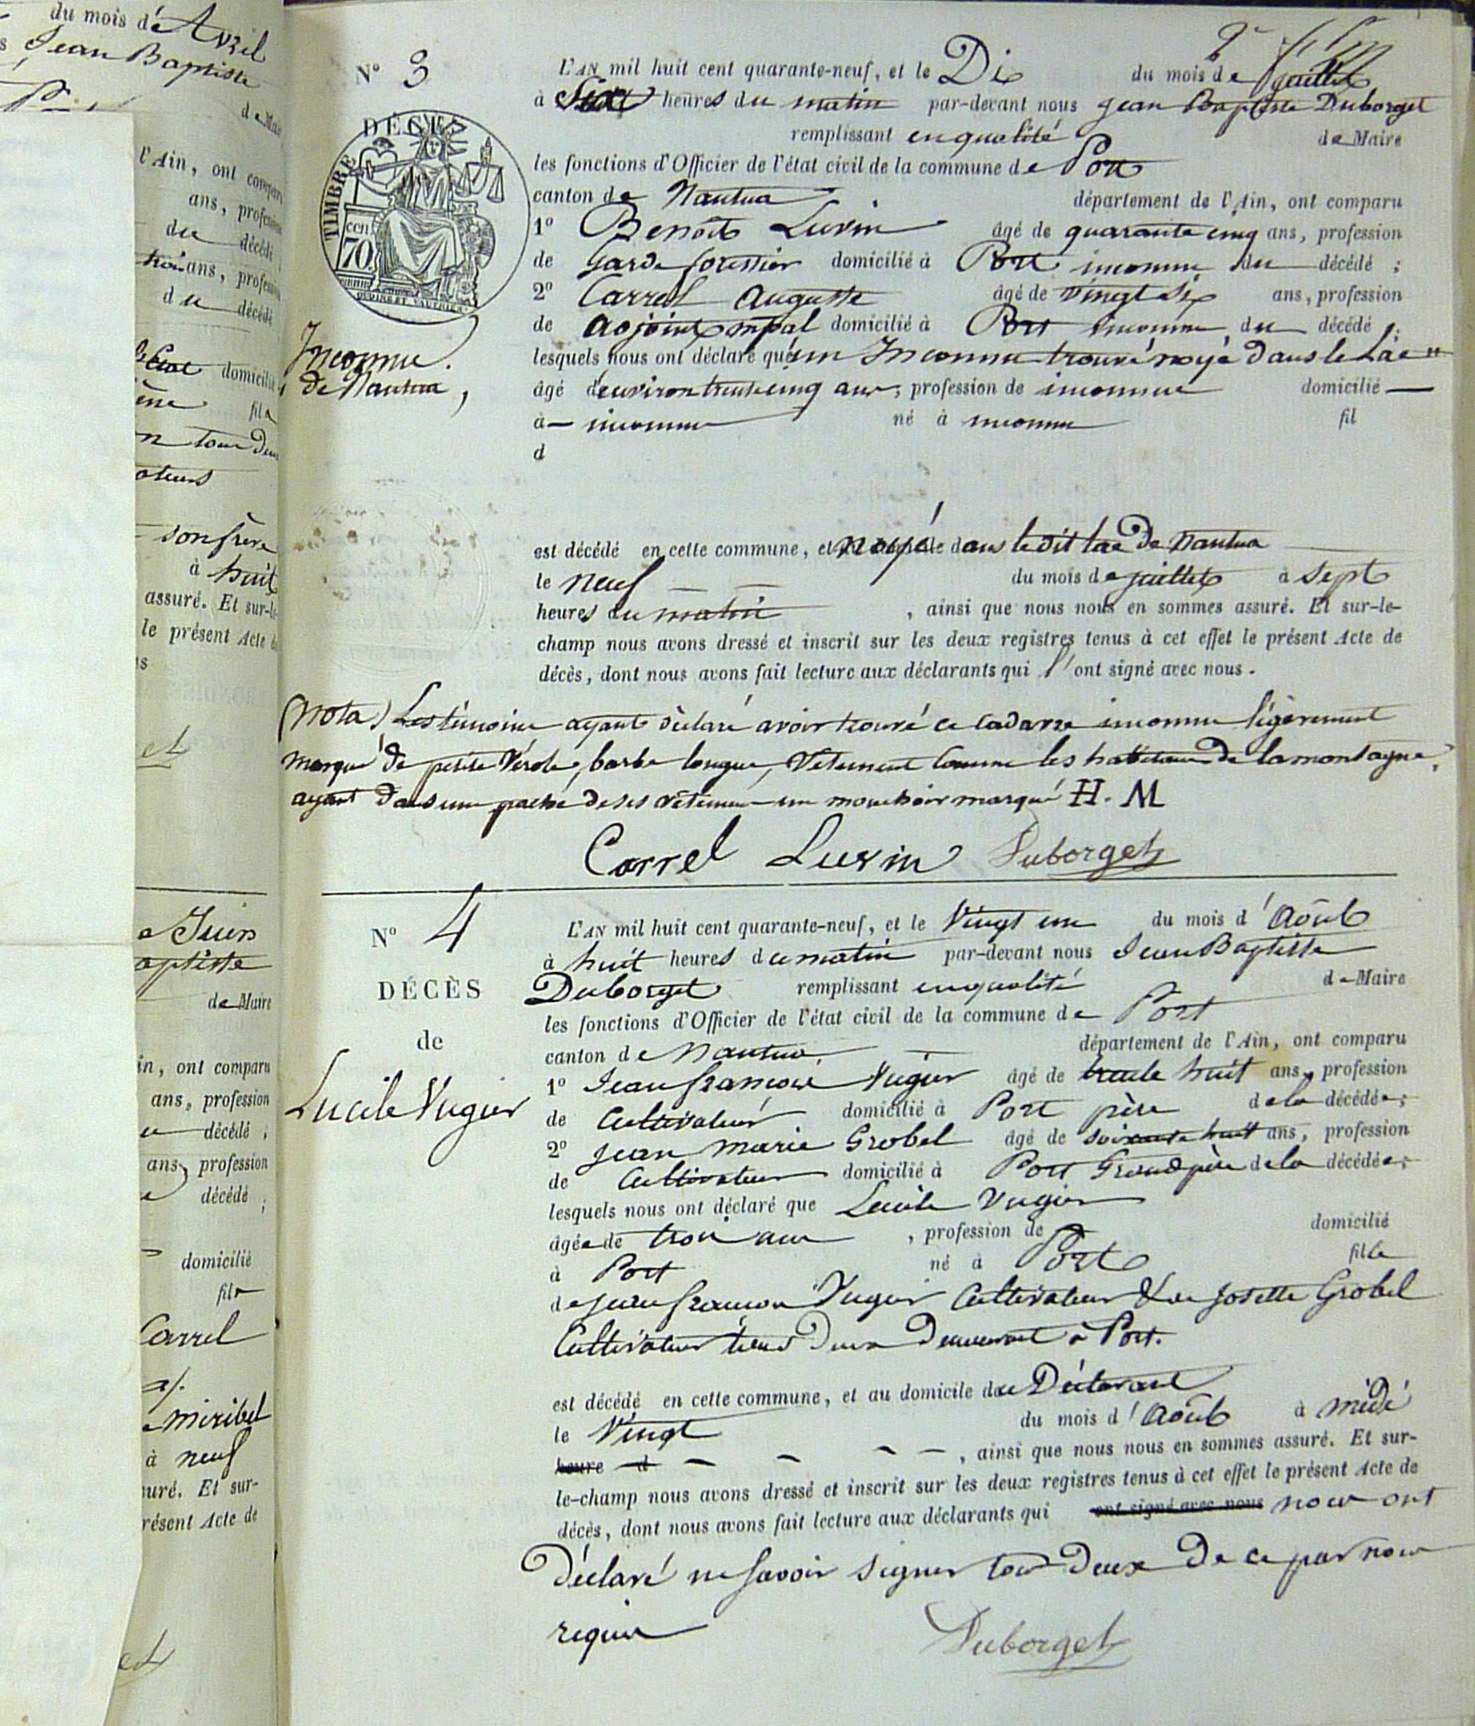 du mois d'Avril
Jean Baptiste
de Maire
l'Ain, ont comparu
ans, profession
du décédé
trois ans, profession
du décédé
domicilié
fil
son frère
à huit
assuré. Et sur-le-
le présent Acte de
et
Juin
aptiste
de Maire
in, ont comparu
ans, profession
décédé ;
ans, profession
décédé ;
domicilié
fils
Carrel
Miribel
à neuf
suré. Et sur-
résent Acte de
et
N° 3
DÉCÈS
TIMBRE
cen
70
Inconnu.
de Nantua,
L'AN mil huit cent quarante-neuf, et le Dix du mois de juillet
à heures du matin par-devant nous Jean Baptiste Duborget
remplissant en qualité de Maire
les fonctions d'Officier de l'état civil de la commune de Port
canton de Nantua département de l'Ain, ont comparu
1° Benoît Luvin âgé de quarante cinq ans, profession
de Garde forestier domicilié à Port inconnu du décédé ;
2° Carrel Auguste âgé de vingt six ans, profession
de adjoint mpal domicilié à Port inconnu du décédé ;
lesquels nous ont déclaré que un Inconnu trouvé noyé dans le Lac
âgé d'environ trente cinq ans, profession de inconnue domicilié —
à — inconnu né à inconnu fil
d
est décédé en cette commune, et noyé dans le dit lac de Nantua
le neuf du mois de juillet à sept
heures du matin , ainsi que nous nous en sommes assuré. Et sur-le-
champ nous avons dressé et inscrit sur les deux registres tenus à cet effet le présent Acte de
décès, dont nous avons fait lecture aux déclarants qui l'ont signé avec nous.
(Nota) Les témoins ayant déclaré avoir trouvé ce cadavre inconnu légèrement
marqué de petite Vérole, barbe longue, Vêtement comme les habitans de la montagne,
ayant dans une poche de ses vêtemens un mouchoir marqué H. M
Carrel Luvin Duborget
N° 4
DÉCÈS
de
Lucile Vugier
L'AN mil huit cent quarante-neuf, et le Vingt un du mois d'Août
à huit heures du matin par-devant nous Jean Baptiste
Duborget remplissant en qualité de Maire
les fonctions d'Officier de l'état civil de la commune de Port
canton de Nantua département de l'Ain, ont comparu
1° Jean françois Vugier âgé de trente huit ans, profession
de Cultivateur domicilié à Port père de la décédée ;
2° Jean Marie Grobel âgé de soixante huit ans, profession
de Cultivateur domicilié à Port Grand père de la décédée ;
lesquels nous ont déclaré que Lucile Vugier
âgée de trois ans , profession de domicilié
à Port né à Port fille
de Jean françois Vugier Cultivateur & de Josette Grobel
Cultivateur tous deux demeurant à Port.
est décédé en cette commune, et au domicile du Déclarant
le Vingt du mois d'Août à midi
heure d — — — — , ainsi que nous nous en sommes assuré. Et sur-
le-champ nous avons dressé et inscrit sur les deux registres tenus à cet effet le présent Acte de
décès, dont nous avons fait lecture aux déclarants qui ont signé avec nous nous ont
Déclaré ne savoir signer tous deux de ce par nous
requis
Duborget